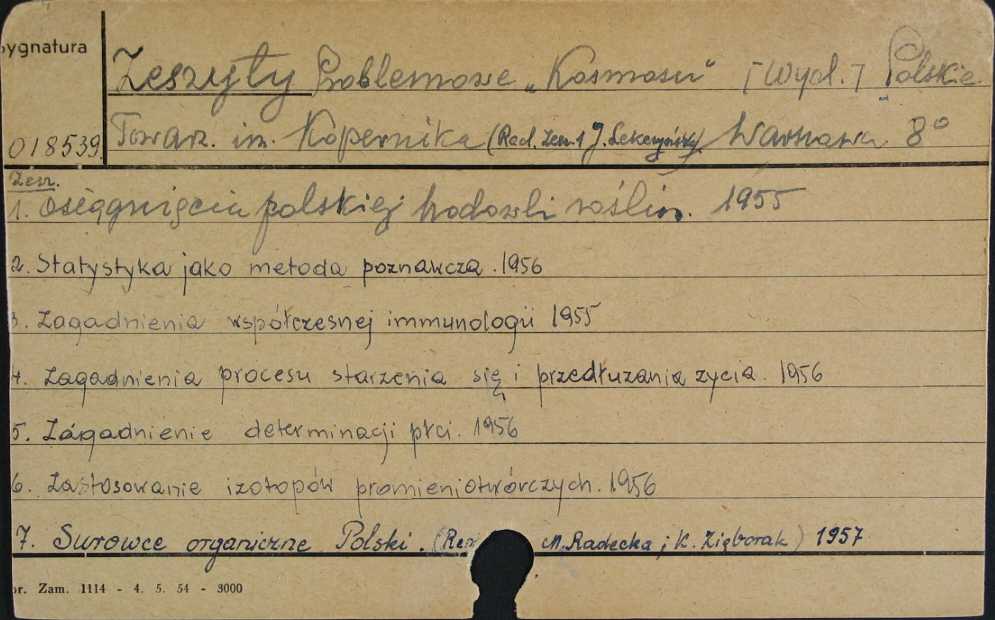 Sygnatura
Zeszyty Problemowe „Kosmosu" [Wyd.] Polskie
018539 Towarz. im. Kopernika (Red. zesz. 1 J. Lekczyńska) Warszawa 8°
Zesz.
1. Osiągnięcia polskiej hodowli roślin. 1955
2. Statystyka jako metoda poznawcza. 1956
3. Zagadnienia współczesnej immunologii 1955
4. Zagadnienia procesu starzenia się i przedłuzania zycia. 1956
5. Zagadnienie determinacji płci. 1956
6. Zastosowanie izotopów promieniotwórczych. 1956
7. Surowce organiczne Polski. (Red. M. Radecka; K. Zięborak) 1957
or. Zam. 1114 - 4. 5. 54 - 3000